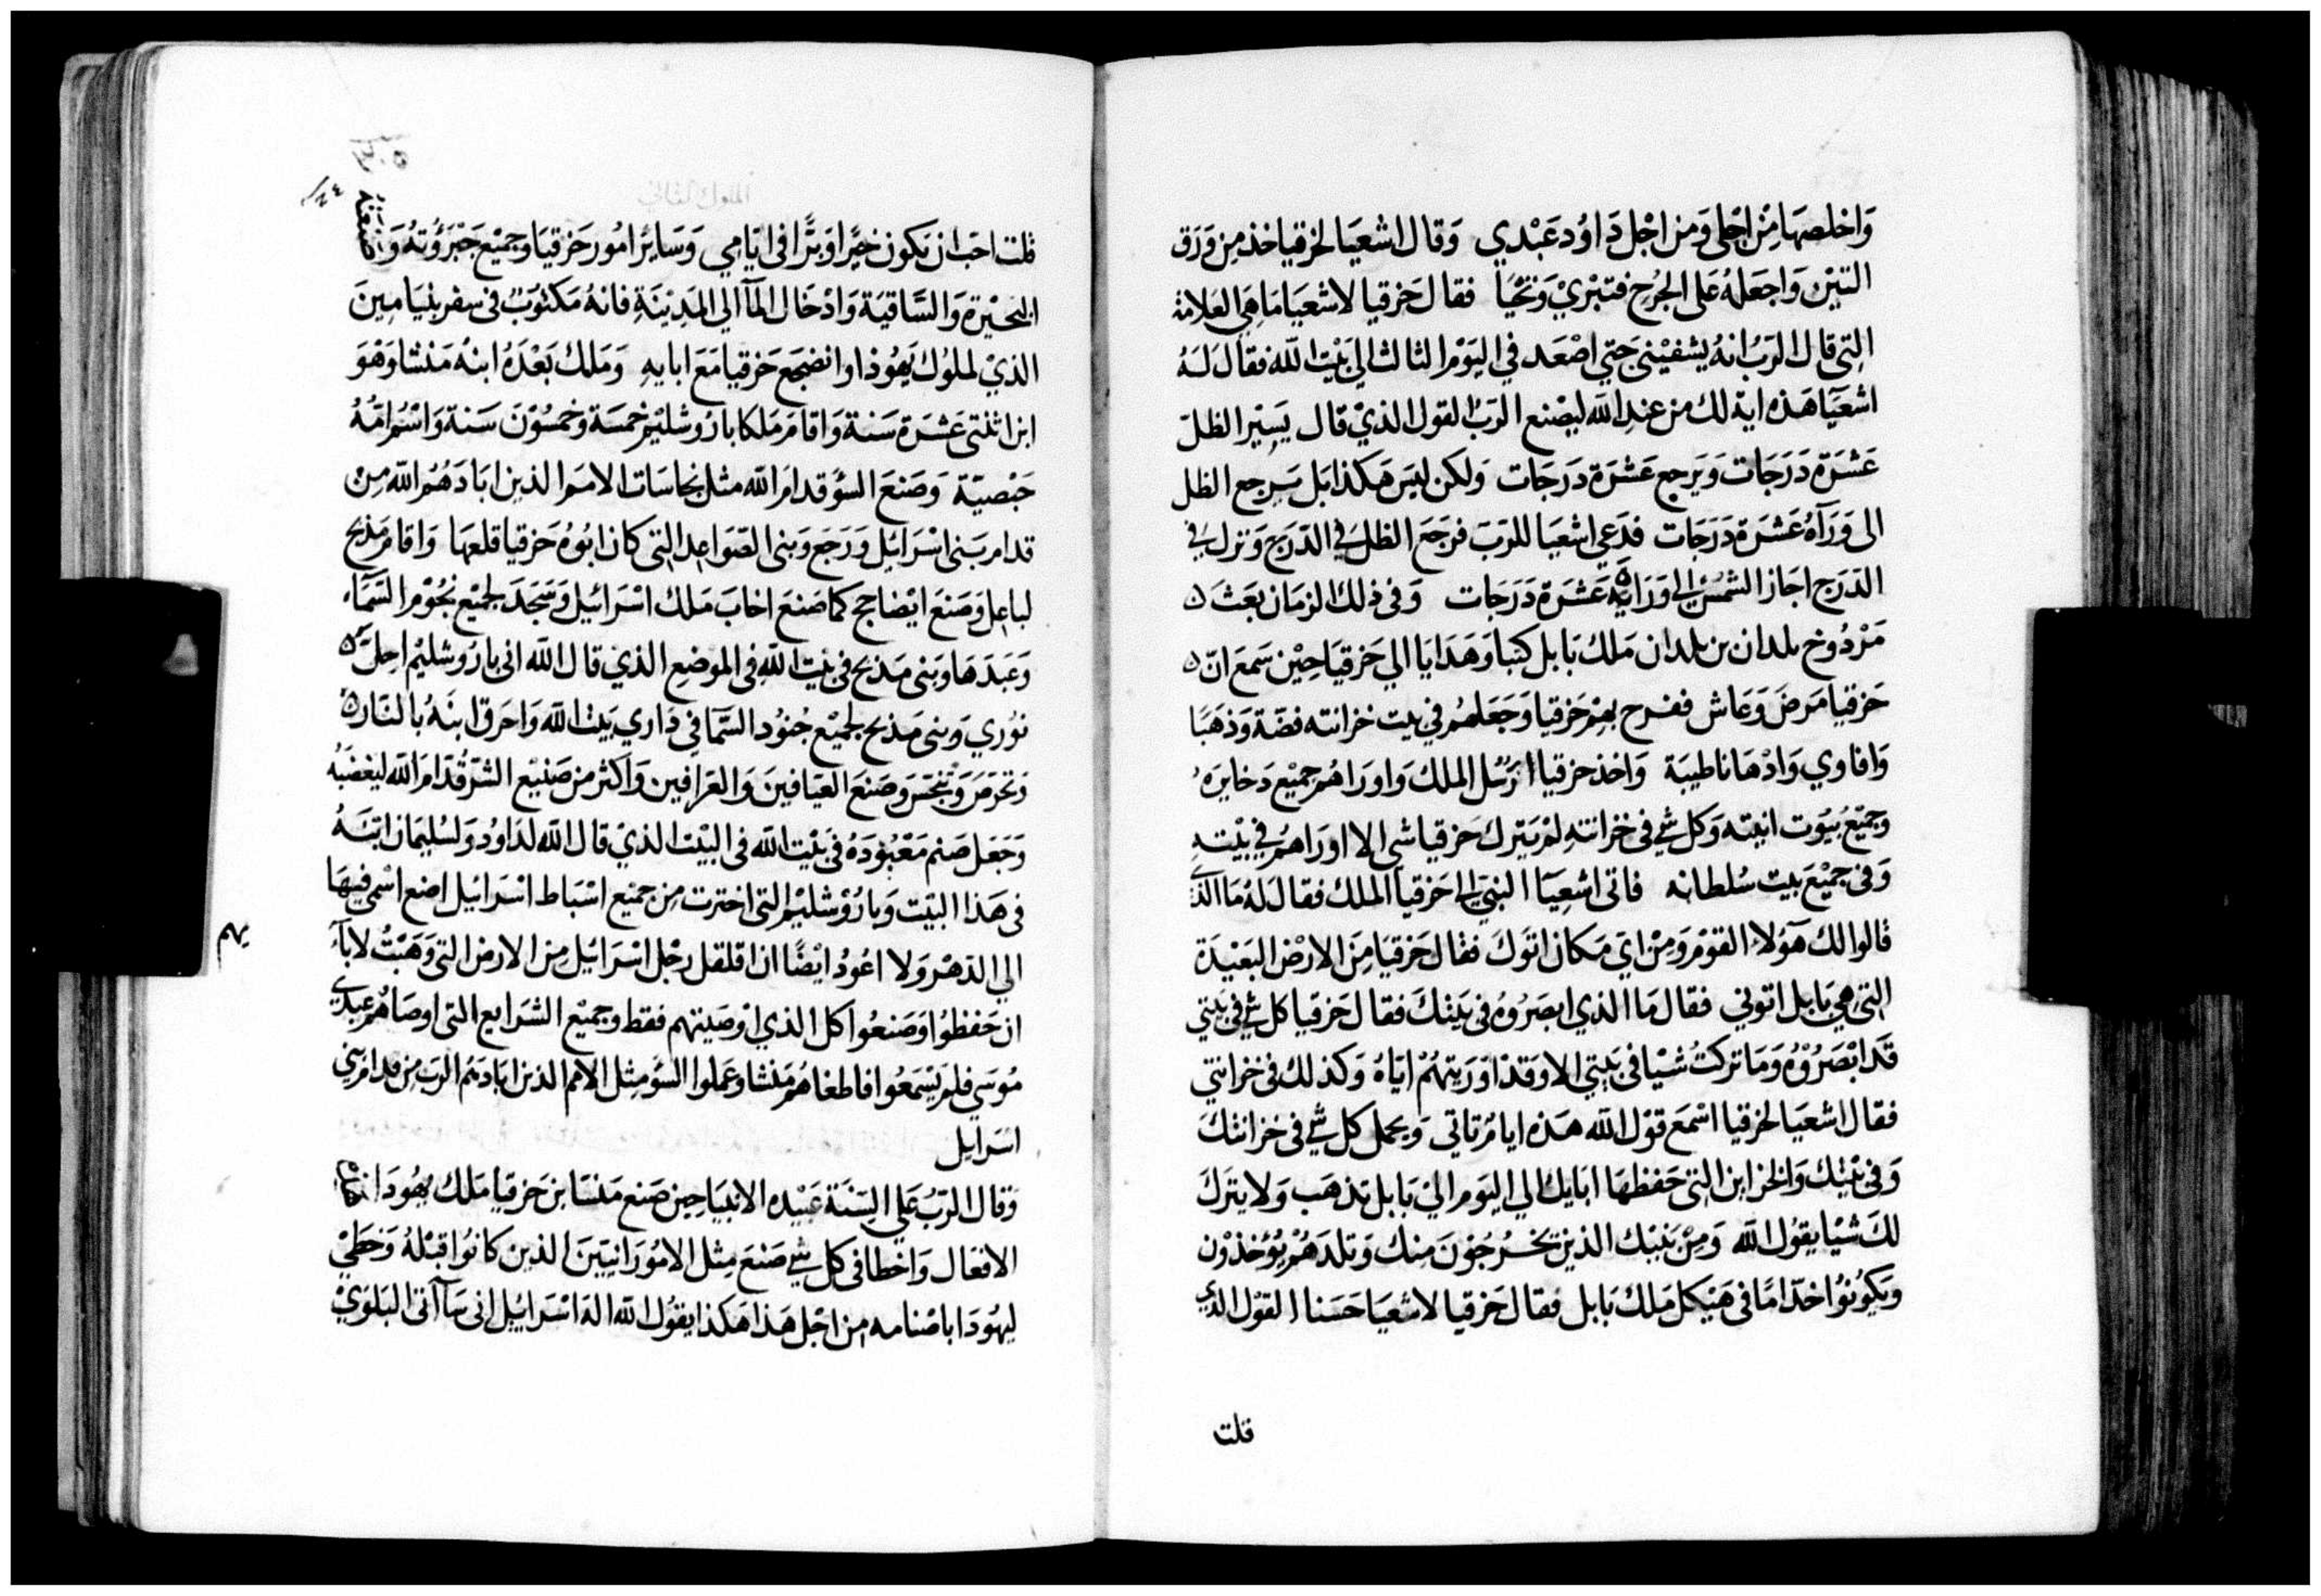 وَاخلصهَا مِنْ اجْلى وَمن اجْل دَاوُد عَبْدي وَقال اشعيَا لحزقيا خذ مِن وَرَق
التيْن وَاجعَلهُ عَلى الجُرح فتبرْيْ وَتحْيَا فقال حَزقيا لاشعيَا مَا هِي العَلامة
التِى قال الرَبُ انهُ يشفيْنى حَتي اصْعَد في اليَوْم الثالث الي بَيْت الله فقال لهُ
اشعيَآ هَذه ايه لك من عند الله ليصْنع الرَبُ القول الذيْ قال يسِيْر الظلّ
عَشرَة دَرَجَات وَيَرجع عَشرَة دَرجَات وَلكن ليسَ هَكذا بَل يَرجع الظل
الى وَرَآهُ عَشرَة دَرَجَات فدَعي اشعيَا للرَبَ فرَجَعَ الظلَ في الدَرَج وَنزل في
الدَرَج اجَاز الشمسُ الي وَرَايه عَشرَة دَرَجات وَفى ذلكَ الزمَان بعَثَ ٥
مَرْدُوخ بلدان بن بلدان مَلكُ بَابل كتبا وَهَدايا الي حَزقيَا حِيْن سَمعَ انّ ٥
حَزقيا مَرضَ وَعَاش ففرح بهمْ حَزقيا وَجَعَلهُم في بيت خزانته فضة وَذهَبًا
وَافاوي وَادْهَانا طيبَة وَاخذ حزقيا رُسُل الملك وَاورَاهُم جميْع دَخايرَهُ
وجميْعُ بيُوت انيته وَكل شي في خزانتهِ لمْ يَترك حَزقيا شى الا اورَاهُم في بيْتهِ
وَفى جميْعَ بيت سُلطانه فاتى اشعِيَآ النبيَ الي حَزقيا الملك فقال لهُ مَا الذي
قالوا لك هَؤلاء القوْم وَمِنْ ايَ مَكان اتوكَ فقال حَزقيَا مِنَ الارْض البَعيْدَة
التى هِي بَابل اتونى فقال مَا الذي ابصَرُوهُ فى بَيْتكَ فقال حَزقيا كل شي فى بَيتي
قدَ ابْصَرُوْهُ وَمَا تركتُ شيْا فى بَيتي الا وَقدْ اوْرَيتهُمْ ايَاهُ وَكذلكَ فى خزانتي
فقال اشعيَا لحزقيا اسْمَع قوْل الله هَذه ايامُ تاتي وَيحمل كل شي فى خزانتكَ
وَفى بَيْتك وَالخزاين التى حَفظهَا ابَايك الي اليَوم الىْ بَابل تذهَب وَلا يترَك
لكَ شيْا يقوُل الله وَمِنْ بَنيْك الذين يَخرُجُونَ مِنك وَتلدَهُمْ يُؤخذوُن
وَيكوُنوُا خدّامًا فى هَيْكل مَلك بَابل فقال حَزقيا لاشعيَا حَسَنا القوْل الذي
قلت
قلت احَب ان يَكون خيْرًا وَبرًّا فى ايَامي وَسَايرُ امُور حَزقيَا وجميْع جَبْرَؤتهُ
البحيْرة وَالسَّاقيَة وَادْخَال المآ الي المَدِيْنَةِ فانهُ مَكتوُبٌ في سفر بنيَامِينَ
الذيْ لملوُك يَهُوذا وانضجَعَ حَزقيا مَعَ ابايهِ وَمَلك بَعْدَهُ ابنهُ مَنْشا وَهْوَ
ابن اثنتى عَشرَة سَنة وَاقامَ مَلكا بارُوشليْم خمسَة وَخمسُوْنَ سَنة وَاسْمُ امّهُ
حَبْصيّة وَصَنعَ السؤ قدامَ الله مثل نجاسَات الامَم الذين ابَادَهُم الله مِنْ
قدام بَنى اسْرَائيل وَرَجع وَبنى الصَوَاعِد التى كان ابوُهُ حَزقيا قلعهَا وَاقامَ مَذبح
لباعِل وَصَنعَ ايْضا حج كما صَنعَ اخابَ مَلك اسْرَائيل وَسَجَدَ لجميْع نجُوْم السَّمَآء
وَعَبَدَهَا وَبنى مَذبح فى بَيْت اللهِ فى الموضِع الذي قال الله انى باروشليْم احِلّ ٥
نوُري وَبنى مَذبح لجميْع جُنوُد السَّمَا في دَاري بَيتْ الله وَاحرَق ابنَهُ بالنَار ٥
وَتخرَصَ وَتنجسَ وَصَنعَ العيَافينَ وَالعَرافين وَاكثر من صَنيْع الشرّ قدّامَ الله ليغضبَهُ
وَجَعَل صَنم مَعْبُودَهُ فى بَيْت الله فى البَيْت الذيْ قال الله لدَاوُد وَلسُليمَان ابْنَهُ
فى هَذا البيَت وَبارُوْشليْم التى اخترت مِن جميْع اسْبَاط اسْرَائيل اضع اسْمى فيهَا
الي الدَهْر وَلا اعُودُ ايْضًا ان اقلقل رجْل اسْرَائيْل مِن الارض التى وَهَبْتُ لابآء
يهم
ان حَفظوُا وَصَنعُوا كل الذي اوْصَيتهم فقط وجميْع الشرَايع التى اوصَاهُم عبدي
مُوسَى فلم يَسْمَعُوا فاطغاهُم مَنشا وعَملوا السُؤ مِثل الامم الذين ابَادَهُم الربَ مِن قدام بَنى
اسَرايل
وَقال الرَبُّ عَلي السِنَة عَبيْده الانبيَا حِين صَنع مَنسَا بن حَزقيا مَلك يهُودَا
الافعَال وَاخطا فى كل شي صَنعَ مِثل الامُورَانييَنَ الذين كانوُا قبْلهُ وَخطيْ
ليهُودَا باصْنامه من اجْل هَذا هَكذا يقوُل الله اله اسْرَائيْل انى سَآ آتى البَلوَيْ